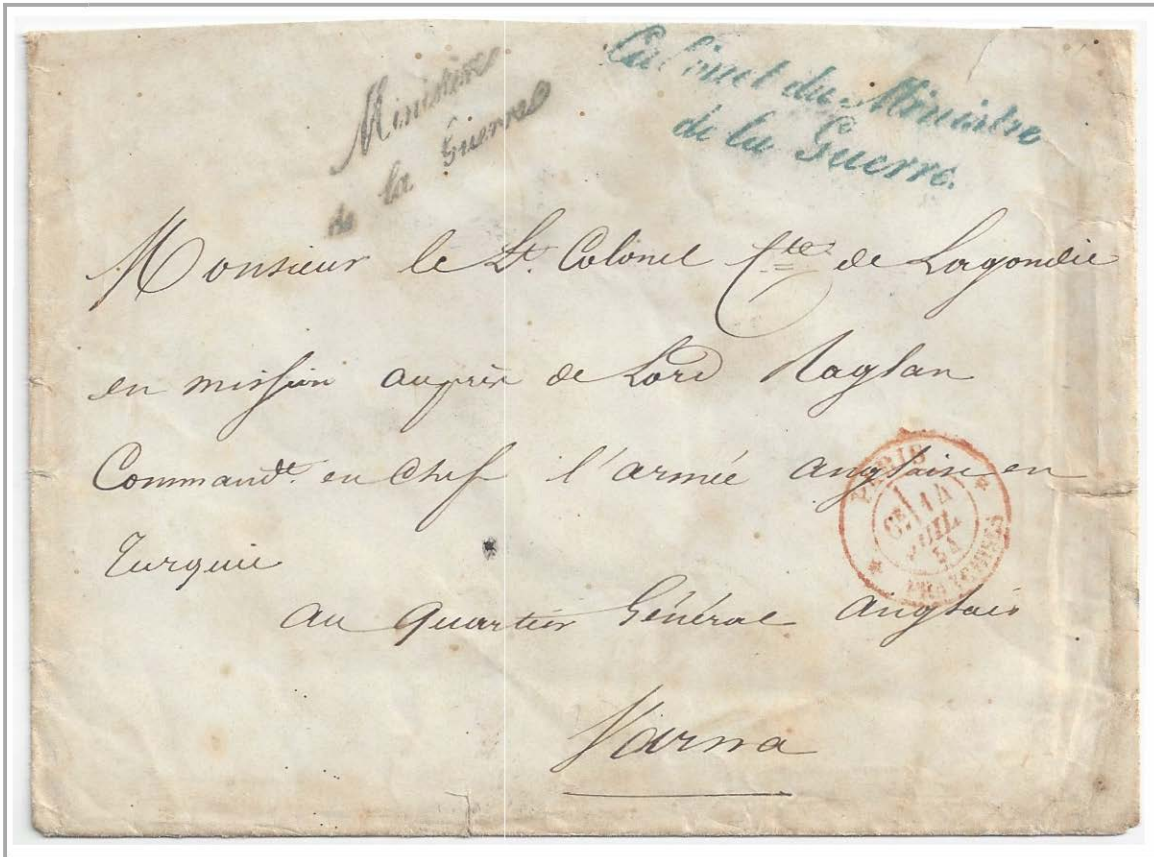 Ministère
de la Guerre
Cabinet du Ministre
de la Guerre.
Monsieur le Lt. Colonel Cte de Lagondie
en mission auprès de Lord Raglan
Commandt. en Chef l'armée anglaise en
Turquie
au Quartier Général anglais
Varna
PARIS
14
JUIL.
54
FRANCHISES